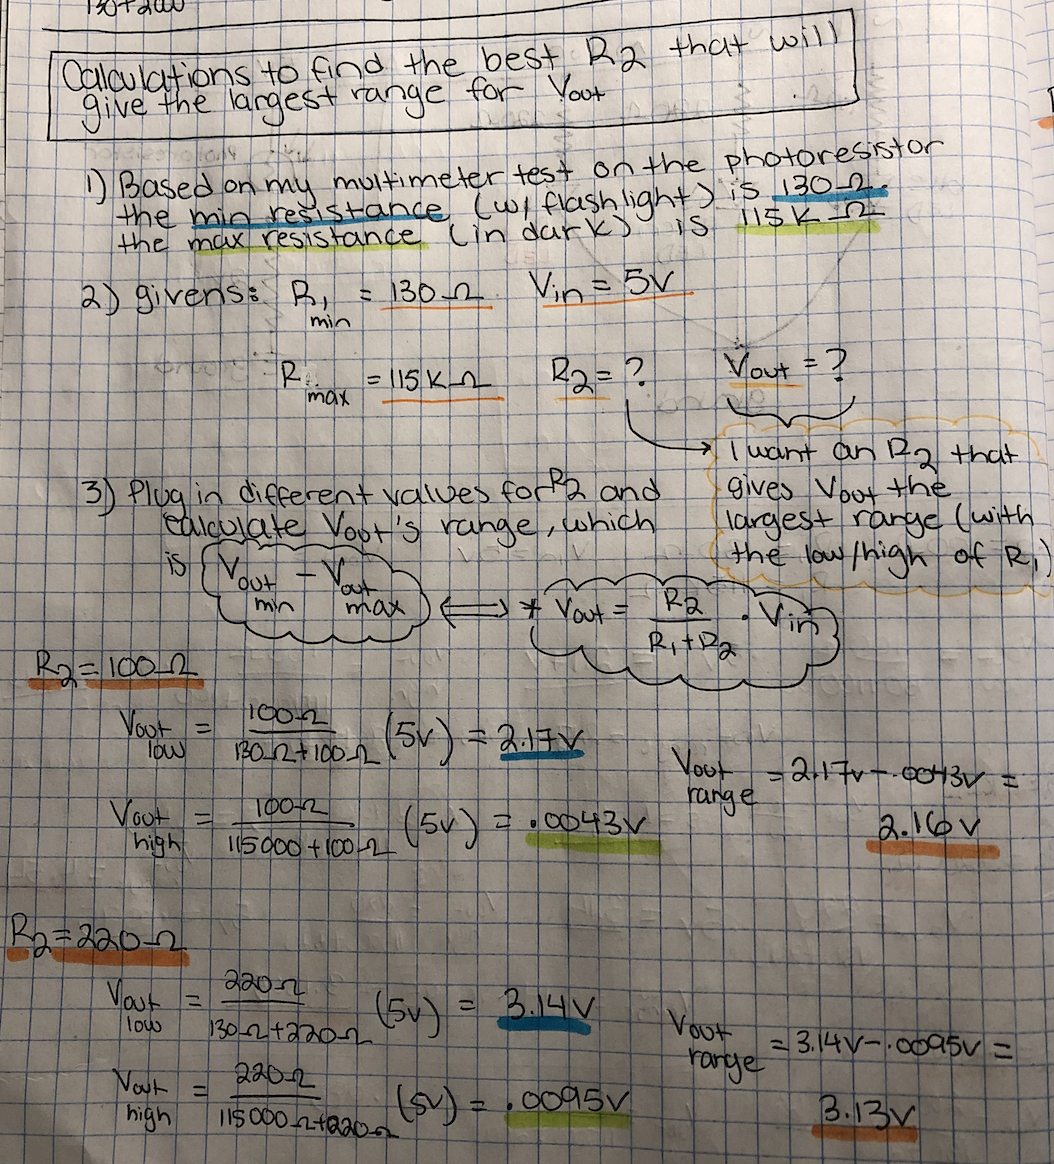 130+200
Calculations to find the best R2 that will
give the largest range for Vout
1) Based on my multimeter test on the photoresistor
the min resistance (w/ flashlight) is 130Ω.
the max resistance (in dark) is 115K-Ω
2) givens: R1 min = 130Ω Vin = 5V
R max = 115KΩ R2 = ? Vout = ?
I want an R2 that
gives Vout the
largest range (with
the low/high of R1)
3) Plug in different values for R2 and
calculate Vout's range, which
is Vout min - Vout max ⟺ * Vout = R2 / R1+R2 · Vin
R2 = 100Ω
Vout low = 100Ω / 130Ω+100Ω (5v) = 2.17V
Vout high = 100Ω / 115000+100Ω (5v) = .0043V
Vout range = 2.17v - .0043v =
2.16V
R2 = 220Ω
Vout low = 220Ω / 130Ω+220Ω (5v) = 3.14V
Vout high = 220Ω / 115000Ω+220Ω (5v) = .0095V
Vout range = 3.14V - .0095V =
3.13V